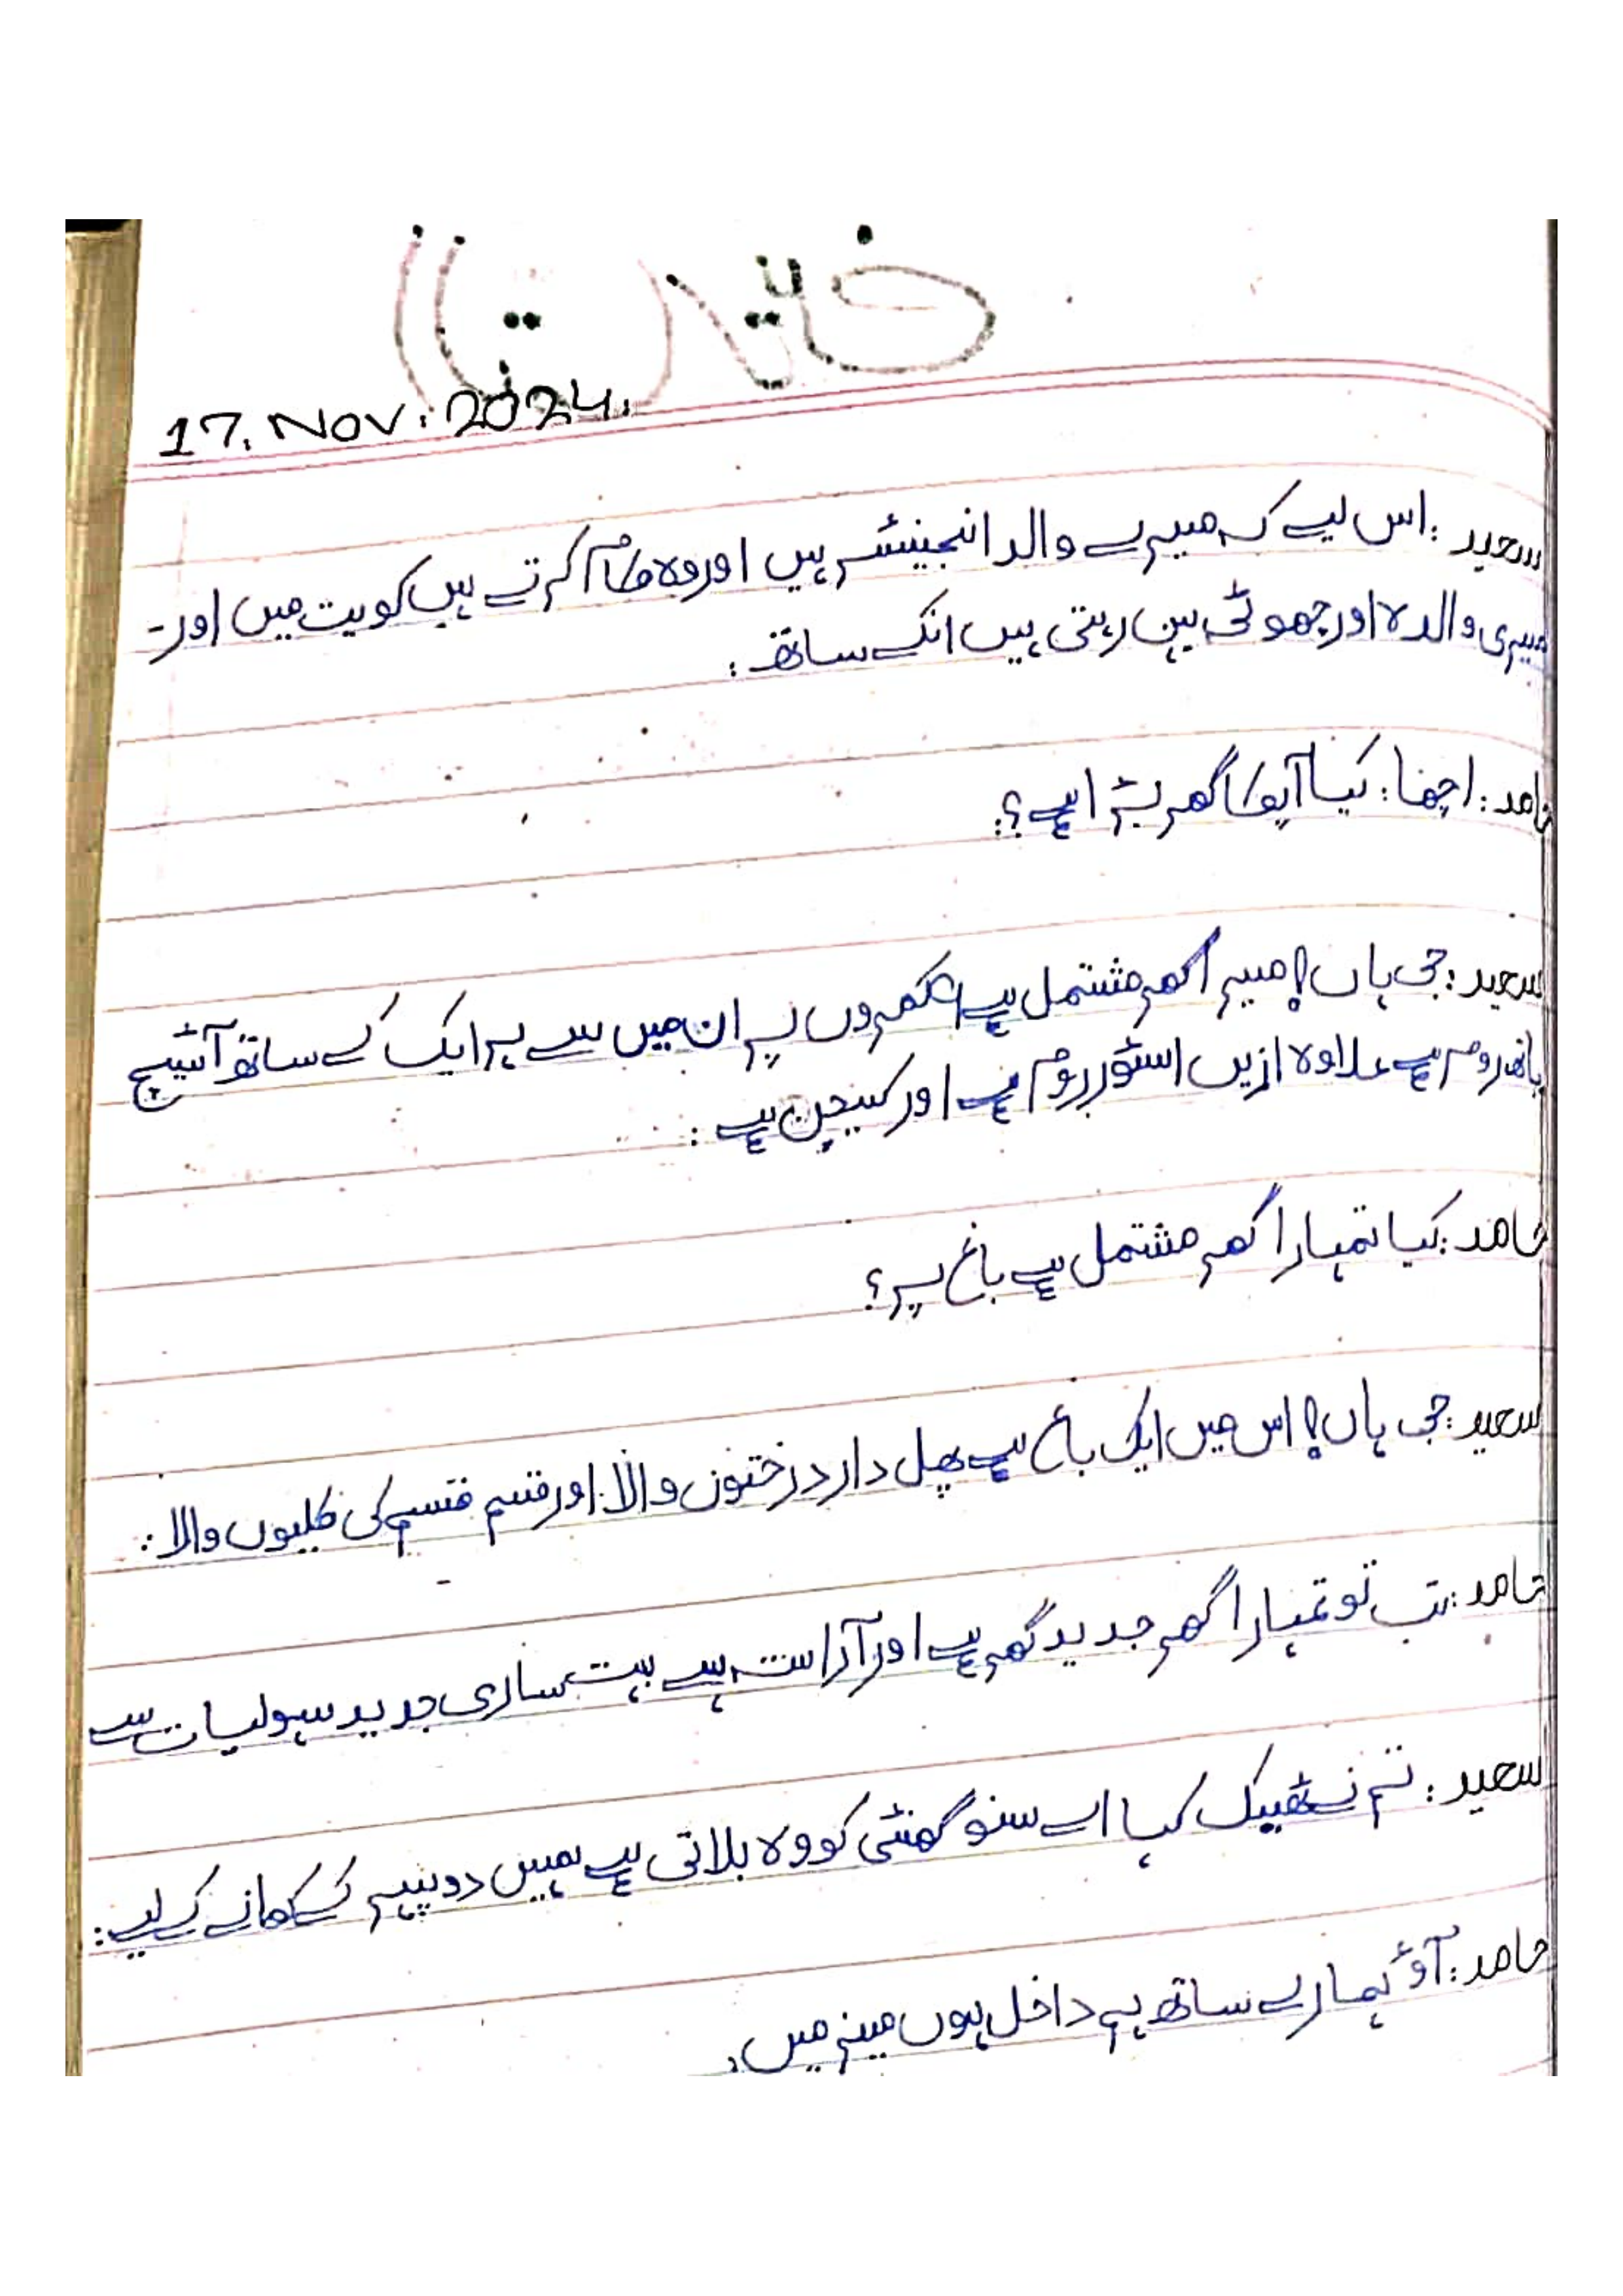 17. Nov. 2024.
سعید : اس لیے کہ میرے والد انجینئر ہیں اور وہ کام کرتے ہیں کویت میں اور -
میری والدہ اور چھوٹی بہن رہتی ہیں انکے ساتھ :
حامد : اچھا : کیا آپکا گھر بڑا ہے ؟
سعید : جی ہاں! میرا گھر مشتمل ہے کمروں پر ان میں سے ہر ایک کے ساتھ آٹیچ
باتھ روم ہے علاوہ ازیں اسٹور روم ہے اور کیچن ہے :
حامد : کیا تمہارا گھر مشتمل ہے باغ پر ؟
سعید : جی ہاں! اس میں ایک باغ ہے پھل دار درختوں والا اور قسم قسم کی کلیوں والا :
حامد : تب تو تمہارا گھر جدید گھر ہے اور آراستہ ہے بہت ساری جدید سہولیات سے
سعید : تم نے ٹھیک کہا اے سنو گھنٹی کو وہ بلاتی ہے ہمیں دوپہر کے کھانے کے لیے :
حامد : آؤ ہمارے ساتھ ہم داخل ہوں میں